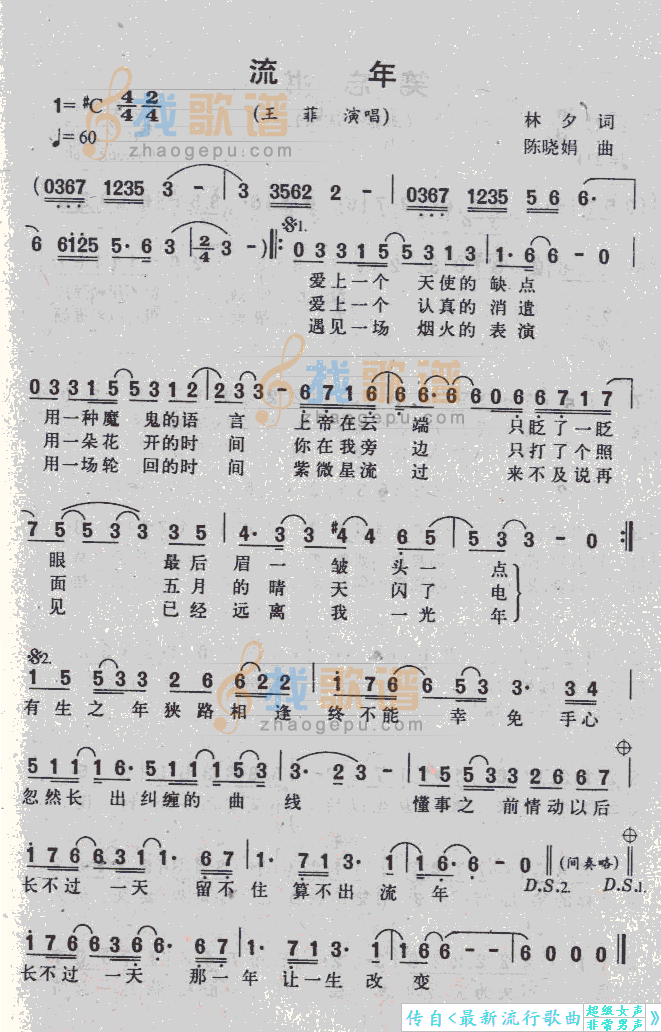 流年
1=#C 4/4 2/4
♩=60
(王菲 演唱)
林夕 词
陈晓娟 曲
找歌谱
zhaogepu.com
(0367 1235 3 - | 3 3562 2 - | 0367 1235 5 6 6·
6 6i25 5·6 3 | 2/4 3 -) ‖: 0 3 3 1 5 5 3 1 3 | 1·6 6 - 0
𝄋1.
爱上一个 天使的缺点
爱上一个 认真的消遣
遇见一场 烟火的表演
找歌谱
0 3 3 1 5 5 3 1 2 | 2 3 3 - 6 7 1 6 | 6 6· 6 6 0 6 6 7 1 7
用一种魔 鬼的语言 上帝在云端 只眨了一眨
用一朵花 开的时间 你在我旁边 只打了个照
用一场轮 回的时间 紫微星流过 来不及说再
7 5 5 3 3 3 5 | 4· 3 3 #4 4 6 5 | 5 3 3 - 0 :‖
眼 最后眉一皱头一点
面 五月的晴天闪了电
见 已经远离我一光年
𝄋2.
找歌谱
zhaogepu.com
1 5 5 3 3 2 6 6 2 2 | i 7 6 6 5 3 3· 3 4
有生之年狭路相逢 终不能幸免 手心
5 1 1 1 6· 5 1 1 1 5 3 | 3· 2 3 - | 1 5 5 3 3 2 6 6 7
忽然长出纠缠的曲线 懂事之前情动以后
i 7 6 6 3 1 1· 6 7 | 1· 7 1 3· 1 | 1 6· 6 - 0 ‖ (间奏略) ‖
长不过一天 留不住 算不出流年
D.S.2. D.S.1.
i 7 6 6 3 6 6· 6 7 | 1· 7 1 3· 1 | 1 6 6 - - | 6 0 0 0 ‖
长不过一天 那一年 让一生改变
传自<最新流行歌曲 超级女声 非常男声》